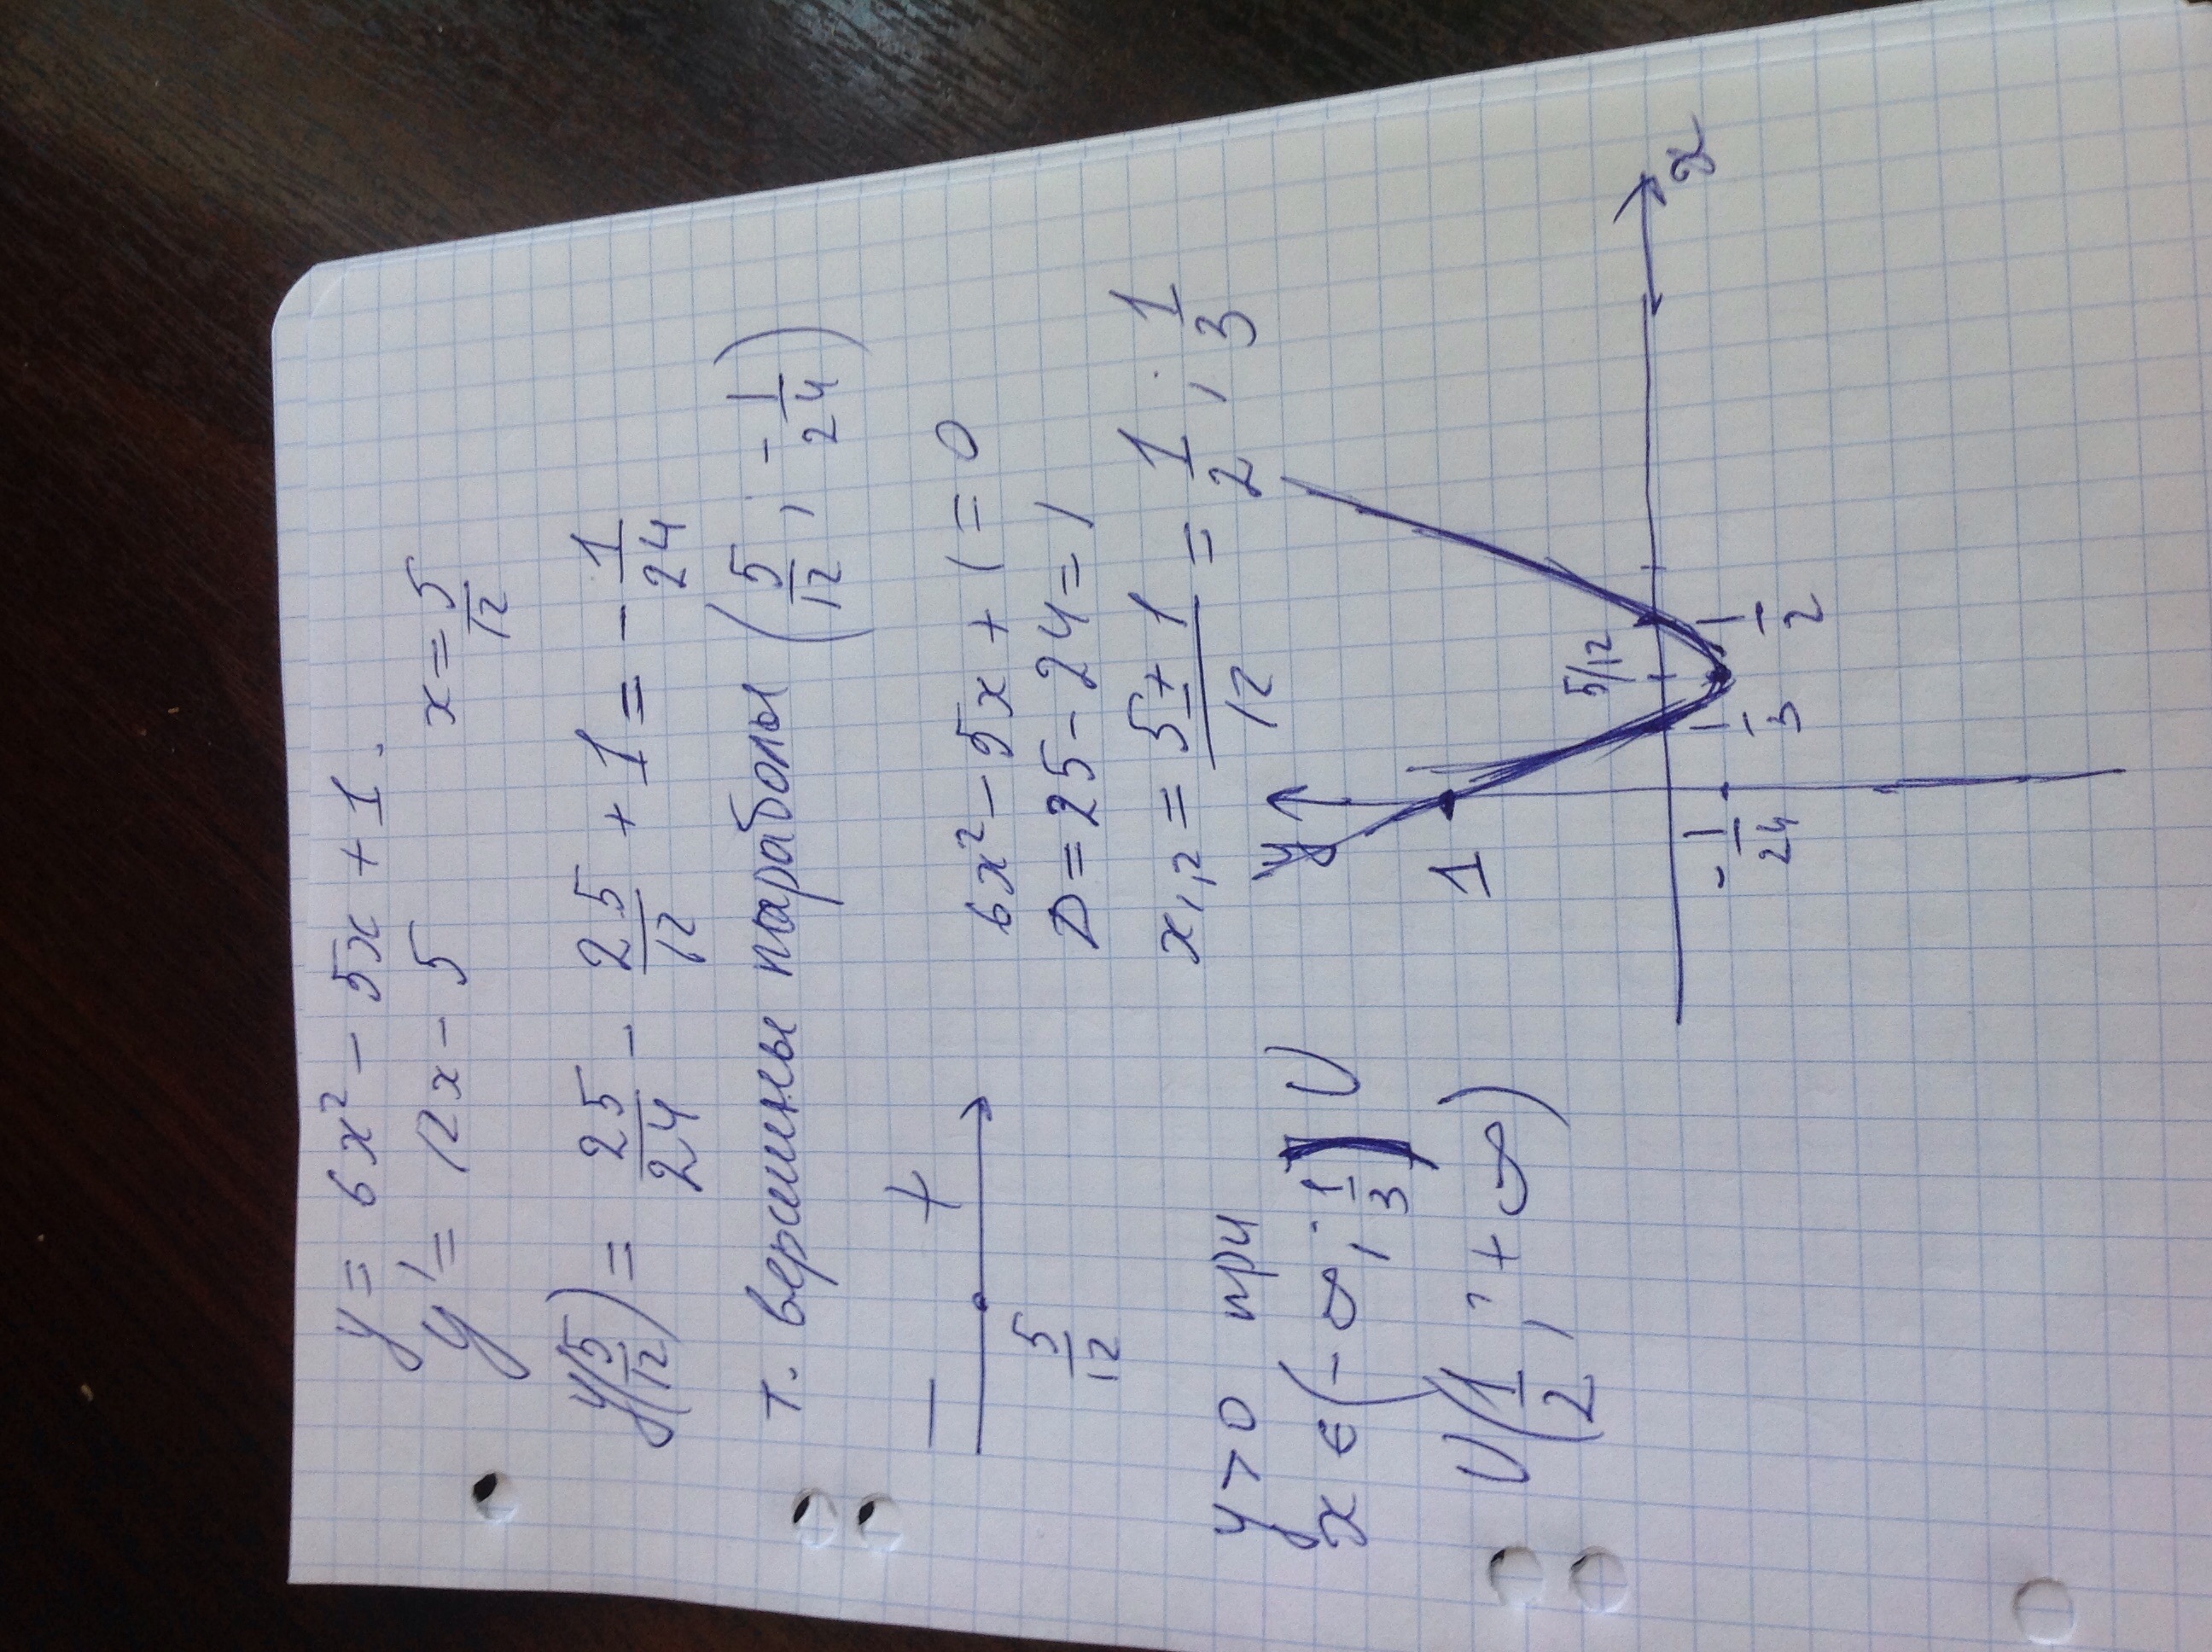 y = 6x² - 5x + 1.
y' = 12x - 5 x = 5/12
y(5/12) = 25/24 - 25/12 + 1 = - 1/24
т. вершины параболы (5/12; - 1/24)
- +
5/12
6x² - 5x + 1 = 0
D = 25 - 24 = 1
x₁,₂ = (5 ± 1)/12 = 1/2; 1/3
y > 0 при
x ∈ (-∞; 1/3) ∪
∪ (1/2; +∞)
y
1
5/12
x
- 1/24
1/3
1/2